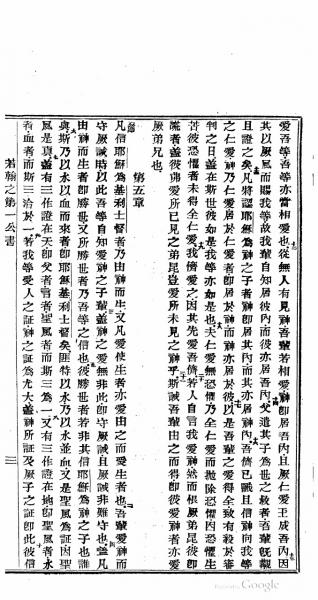 愛吾等吾等亦當相愛也從無人有見神吾輩若相愛神卽居吾內且厥仁愛王成吾內因
其以厥風而賜我等故我輩自知居彼內而彼亦居吾內父遣其子爲世之救者吾輩旣觀
且證之矣凡將認耶穌爲神之子者神卽居其內而其亦居神內吾儕已識且信神向我等
之仁愛神乃仁愛居於仁愛者卽居於神而神亦居於彼以是吾輩之愛得全致有毅於審
判之日蓋在斯世彼如是我等亦如是也夫仁愛無恐懼乃全仁愛而拋除恐懼因恐懼生
苦彼恐懼者未得全仁愛我儕愛之因其先愛吾儕若人自言我愛神然而恨厥弟昆彼卽
謊者蓋彼弗愛所已見之弟昆豈愛所未見之神乎斯誡吾輩由之而得卽彼愛神者亦愛
厥弟兄也
第五章
凡信耶穌爲基利士督者乃由神而生又凡愛使生者亦愛由之而受生者也吾輩愛神而
守厥誡時以此吾等自知愛神之子輩蓋神之愛無非此卽守厥誡且厥誡非難守也蓋凡
由神而生者卽勝世又所勝世者乃吾等之信也彼勝世者若非其信耶穌爲神之子也誰
與斯乃以水以血而來者卽耶穌基利士督矣匪特以水乃以水並血又是聖風爲証因聖
風是真蓋有三作證在天卽父者言者聖風者而斯三者一又有三作證在地卽聖風者水
者血者而斯三洽於一若我等受人之証神之証爲尤大蓋神所証及厥子之証卽此彼信
若翰之第一公書 三
Digitized by Google